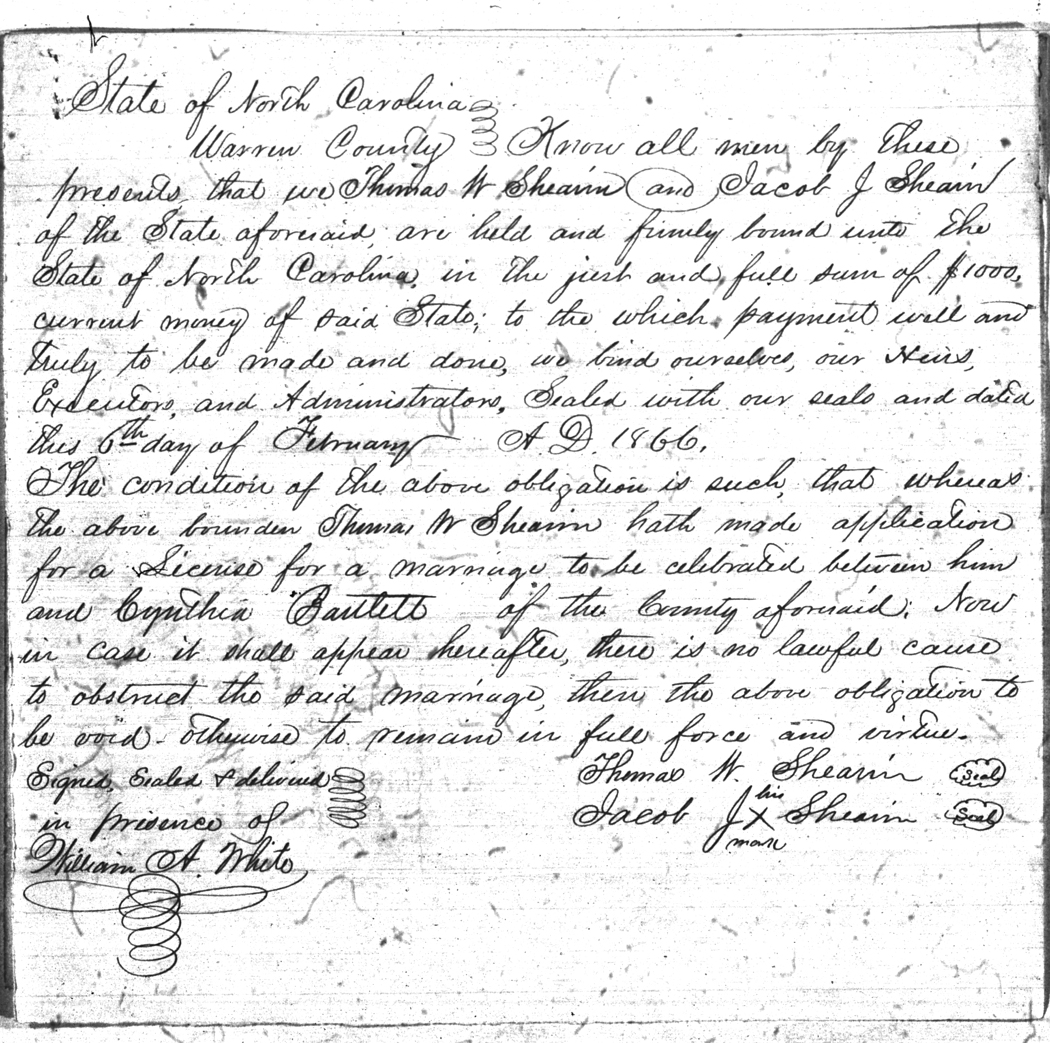 State of North Carolina
Warren County Know all men by these
presents, that we Thomas W Shearin and Jacob J Shearin
of the State aforesaid, are held and firmly bound unto the
State of North Carolina, in the just and full sum of $1000,
current money of said State; to the which payment well and
truly to be made and done, we bind ourselves, our Heirs,
Executors, and Administrators, Sealed with our seals and dated
this 6th day of February A.D. 1866.
The condition of the above obligation is such, that whereas
the above bounden Thomas W Shearin hath made application
for a License for a marriage to be celebrated between him
and Cynthia Bartlett of the County aforesaid; Now
in case it shall appear hereafter, there is no lawful cause
to obstruct the said marriage, then the above obligation to
be void - otherwise to remain in full force and virtue.
Signed, Sealed & delivered Thomas W. Shearin Seal
in presence of Jacob J his X mark Shearin Seal
William A. White